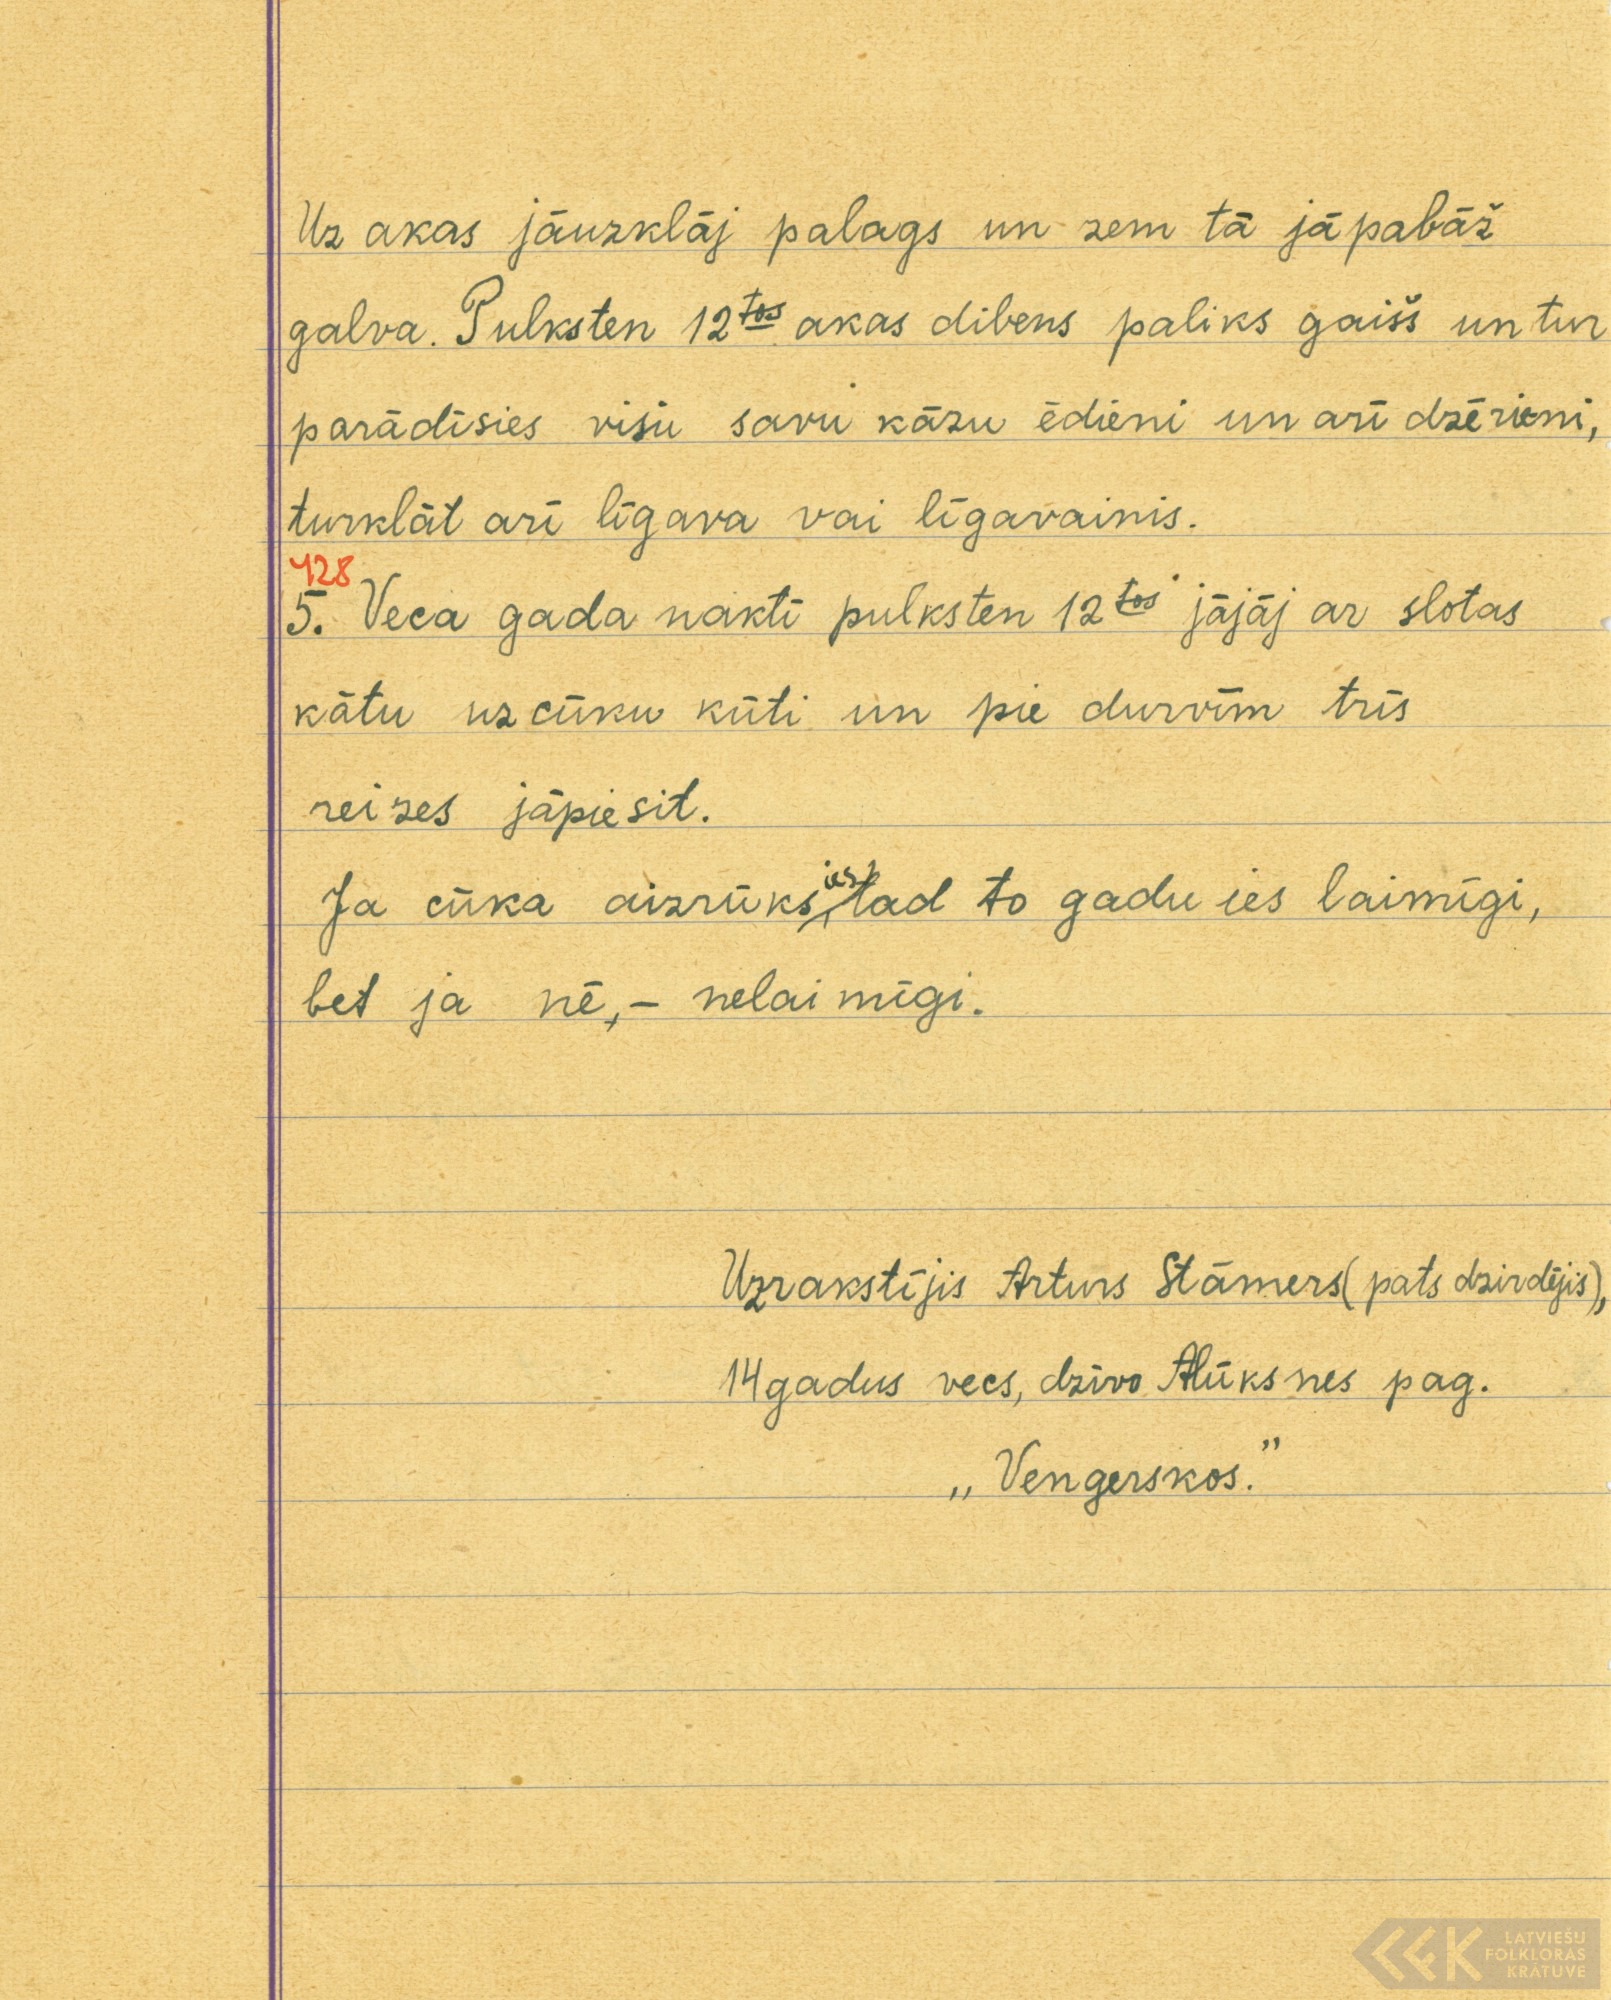 Uz akas jāuzklāj palags un zem tā jāpabāž
galva. Pulksten 12tos akas dibens paliks gaišs un tur
parādīsies visu savu kāzu ēdieni un arī dzērieni,
turklāt arī līgava vai līgavainis.
428
5. Veca gada naktī pulksten 12tos jājāj ar slotas
kātu uz cūku kūti un pie durvīm trīs
reizes jāpiesit.
Ja cūka aizrūksies, tad to gadu ies laimīgi,
bet ja nē, – nelaimīgi.
Uzrakstījis Arturs Stāmers (pats dzirdējis),
14 gadus vecs, dzīvo Alūksnes pag.
„Vengerskos.”
LATVIEŠU
FOLKLORAS
KRĀTUVE